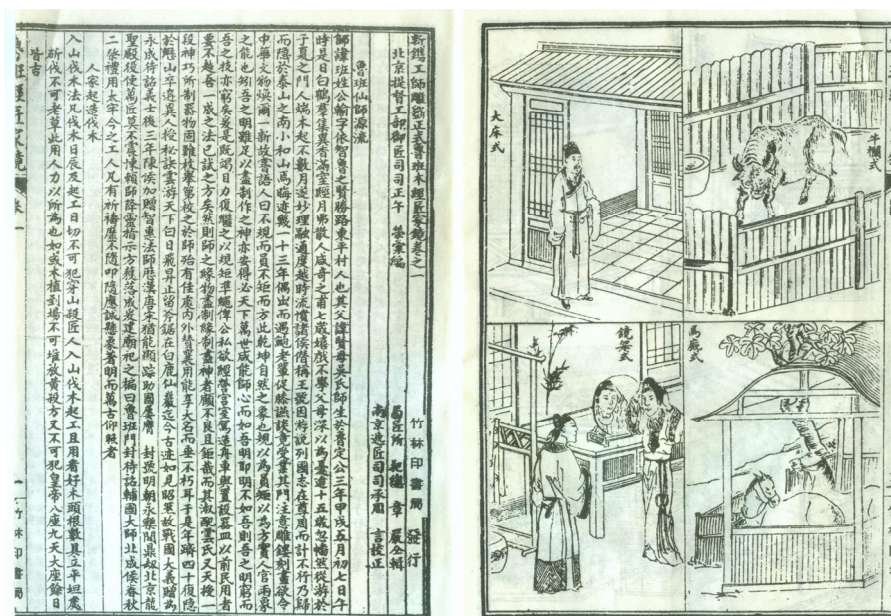 牛欄式
大床式
馬廄式
鏡架式
新鐫工師雕斵正式魯班木經匠家鏡卷之一
北京提督工部御匠司司正午 榮彙編
局匠所把總 章 嚴仝輯
南京遞匠司司承周 言校正
竹林印書局 發行
魯班仙師源流
師諱班姓公輸字依智魯之賢勝路東平村人也其父諱賢母吳氏師生於魯定公三年甲戌五月初七日午
時是日白鶴羣集異香滿室經月弗散人咸奇之甫七歲嬉戲不學父母深以為憂迨十五歲忽幡然從游於
子夏之門人端木起不數月遂妙理融通度越時流憤諸侯僭稱王號因游說列國志在尊周而計不行乃歸
而隱於泰山之南小和山焉晦迹幾一十三年偶出而遇鮑老輩促膝讌談竟受業其門注意雕鏤刻畫欲令
中華文物煥爾一新故嘗語人曰不規而員不矩而方此乾坤自然之象也規以為員矩以為方實人官兩象
之能也矧吾之明雖足以盡制作之神亦安得必天下萬世咸能師心而如吾明耶明不如吾則吾之明窮而
吾之技亦窮矣爰是既竭目力復繼之以規矩準繩俾公私欲經營宮室駕造舟車與置設器皿以前民用者
要不越吾一成之法已試之方矣然則師之緣物盡制緣制盡神者顧不良且鉅哉而其淑配雲氏又天授一
段神巧所制器物固難枚舉第較之於師殆有佳處內外贊襄用能享大名而垂不朽耳于是年躋四十復隱
於歷山卒遘異人授秘訣雲游天下白日飛昇止留斧鋸在白鹿仙巖迄今古迹如見昭然故戰國大義贈為
永成待詔義士後三年陳侯加贈智惠法師歷漢唐宋猶能顯踪助國屢膺 封號明朝永樂間鼎刱北京龍
聖殿役使萬匠莫不震悚賴師降靈指示方獲落成爰建廟祀之匾曰魯班門封待詔輔國大師北成侯春秋
二祭禮用太牢今之工人凡有祈禱靡不隨叩隨應誠懸象著明而萬古仰照者
人家起造伐木
入山伐木法凡伐木日辰及起工日切不可犯穿山殺匠人入山伐木起工且用看好木頭根數具立平坦處
斫伐不可老草此用人力以所為也如或木植到場不可堆放黃殺方又不可犯皇帝八座九天大座餘日
皆吉
魯班經匠家鏡 卷一 一 竹林印書局